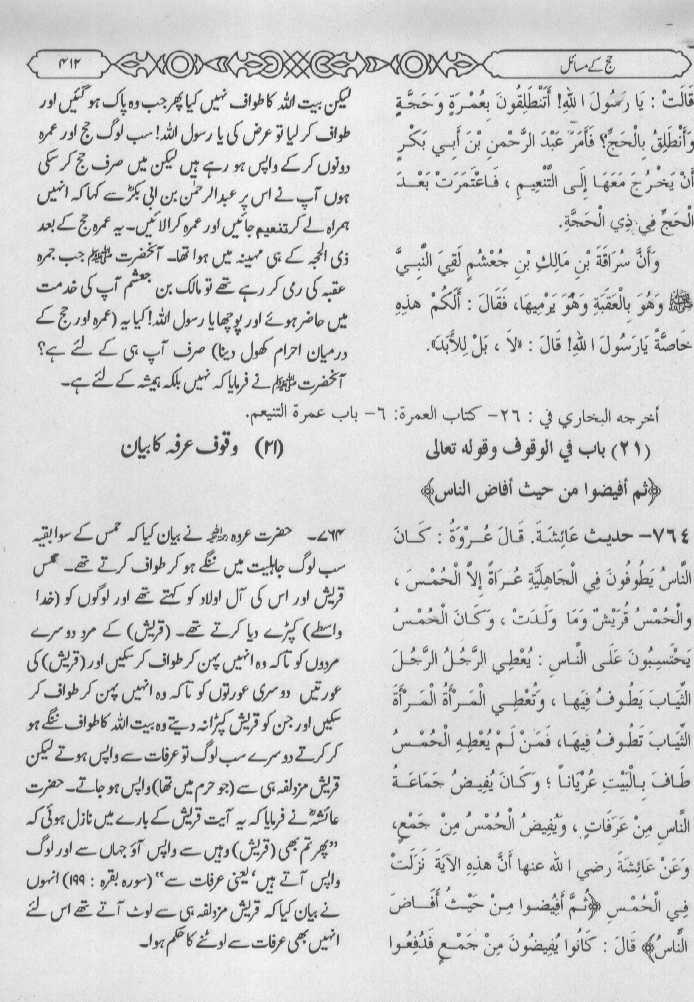 حج کے مسائل
۴۱۲
قَالَتْ : يَا رَسُولَ اللهِ! أَتَنْطَلِقُونَ بِعُمْرَةٍ وَحَجَّةٍ
وَأَنْطَلِقُ بِالْحَجِّ؟ فَأَمَرَ عَبْدَ الرَّحْمنِ بْنَ أَبِي بَكْرٍ
أَنْ يَخْرُجَ مَعَهَا إِلَى التَّنْعِيمِ ، فَاعْتَمَرَتْ بَعْدَ
الْحَجِّ فِي ذِي الْحَجَّةِ.
وَأَنَّ سُرَاقَةَ بْنِ مَالِكِ بْنِ جُعْشُمٍ لَقِيَ النَّبِيَّ
ﷺ وَهُوَ بِالْعَقَبَةِ وَهُوَ يَرْمِيهَا، فَقَالَ : أَلَكُمْ هذِهِ
خَاصَّةً يَارَسُولَ اللهِ! قَالَ : «لاَ ، بَلْ لِلأَبَدِ».
لیکن بیت اللہ کا طواف نہیں کیا پھر جب وہ پاک ہو گئیں اور
طواف کر لیا تو عرض کی یا رسول اللہ! سب لوگ حج اور عمرہ
دونوں کر کے واپس ہو رہے ہیں لیکن میں صرف حج کر سکی
ہوں آپ نے اس پر عبدالرحمٰن بن ابی بکرؓ سے کہا کہ انہیں
ہمراہ لے کر تنعیم جائیں اور عمرہ کرا لائیں۔ یہ عمرہ حج کے بعد
ذی الحجہ کے ہی مہینہ میں ہوا تھا۔ آنحضرت ﷺ جب جمرہ
عقبہ کی رمی کر رہے تھے تو مالک بن جعشم آپ کی خدمت
میں حاضر ہوئے اور پوچھا یا رسول اللہ! کیا یہ (عمرہ اور حج کے
درمیان احرام کھول دینا) صرف آپ ہی کے لئے ہے؟
آنحضرت ﷺ نے فرمایا کہ نہیں بلکہ ہمیشہ کے لئے ہے۔
أخرجه البخاري في : ٢٦- كتاب العمرة: ٦- باب عمرة التنيعم.
(٢١) باب في الوقوف وقوله تعالى
﴿ثم أفيضوا من حيث أفاض الناس﴾
(۲۱) وقوف عرفہ کا بیان
٧٦٤- حديث عَائِشَةَ. قَالَ عُرْوَةُ : كَانَ
النَّاسُ يَطُوفُونَ فِي الْجَاهِلِيَّةِ عُرَاةً إِلاَّ الْحُمْسَ ،
وَالْحُمْسُ قُرَيْشٌ وَمَا وَلَدَتْ ، وَكَانَ الْحُمْسُ
يَحْتَسِبُونَ عَلَى النَّاسِ : يُعْطِي الرَّجُلُ الرَّجُلَ
الثِّيَابَ يَطُوفُ فِيهَا ، وَتُعْطِي الْمَرْأَةُ الْمَرْأَةَ
الثِّيَابَ تَطُوفُ فِيهَا، فَمَنْ لَمْ يُعْطِهِ الْحُمْسُ
طَافَ بِالْبَيْتِ عُرْيَانًا ؛ وَكَانَ يُفِيضُ جَمَاعَةُ
النَّاسِ مِنْ عَرَفَاتٍ ، وَيُفِيضُ الْحُمْسُ مِنْ جَمْعٍ،
وَعَنْ عَائِشَةَ رضي الله عنها أَنَّ هذِهِ الآيَةَ نَزَلَتْ
فِي الْحُمْسِ ﴿ثُمَّ أَفِيضُوا مِنْ حَيْثُ أَفَاضَ
النَّاسُ﴾ قَالَ : كَانُوا يُفِيضُونَ مِنْ جَمْعٍ فَدُفِعُوا
۷۶۴۔ حضرت عروہ رحمہ اللہ نے بیان کیا کہ حمس کے سوا بقیہ
سب لوگ جاہلیت میں ننگے ہو کر طواف کرتے تھے۔ حمس
قریش اور اس کی آل اولاد کو کہتے تھے اور لوگوں کو (خدا
واسطے) کپڑے دیا کرتے تھے۔ (قریش) کے مرد دوسرے
مردوں کو تاکہ وہ انہیں پہن کر طواف کر سکیں اور (قریش) کی
عورتیں دوسری عورتوں کو تاکہ وہ انہیں پہن کر طواف کر
سکیں اور جن کو قریش کپڑا نہ دیتے وہ بیت اللہ کا طواف ننگے ہو
کر کرتے دوسرے سب لوگ تو عرفات سے واپس ہوتے لیکن
قریش مزدلفہ ہی سے (جو حرم میں تھا) واپس ہو جاتے۔ حضرت
عائشہؓ نے فرمایا کہ یہ آیت قریش کے بارے میں نازل ہوئی کہ
”پھر تم بھی (قریش) وہیں سے واپس آؤ جہاں سے اور لوگ
واپس آتے ہیں‘ یعنی عرفات سے“ (سورہ بقرہ : ۱۹۹) انہوں
نے بیان کیا کہ قریش مزدلفہ ہی سے لوٹ آتے تھے اس لئے
انہیں بھی عرفات سے لوٹنے کا حکم ہوا۔